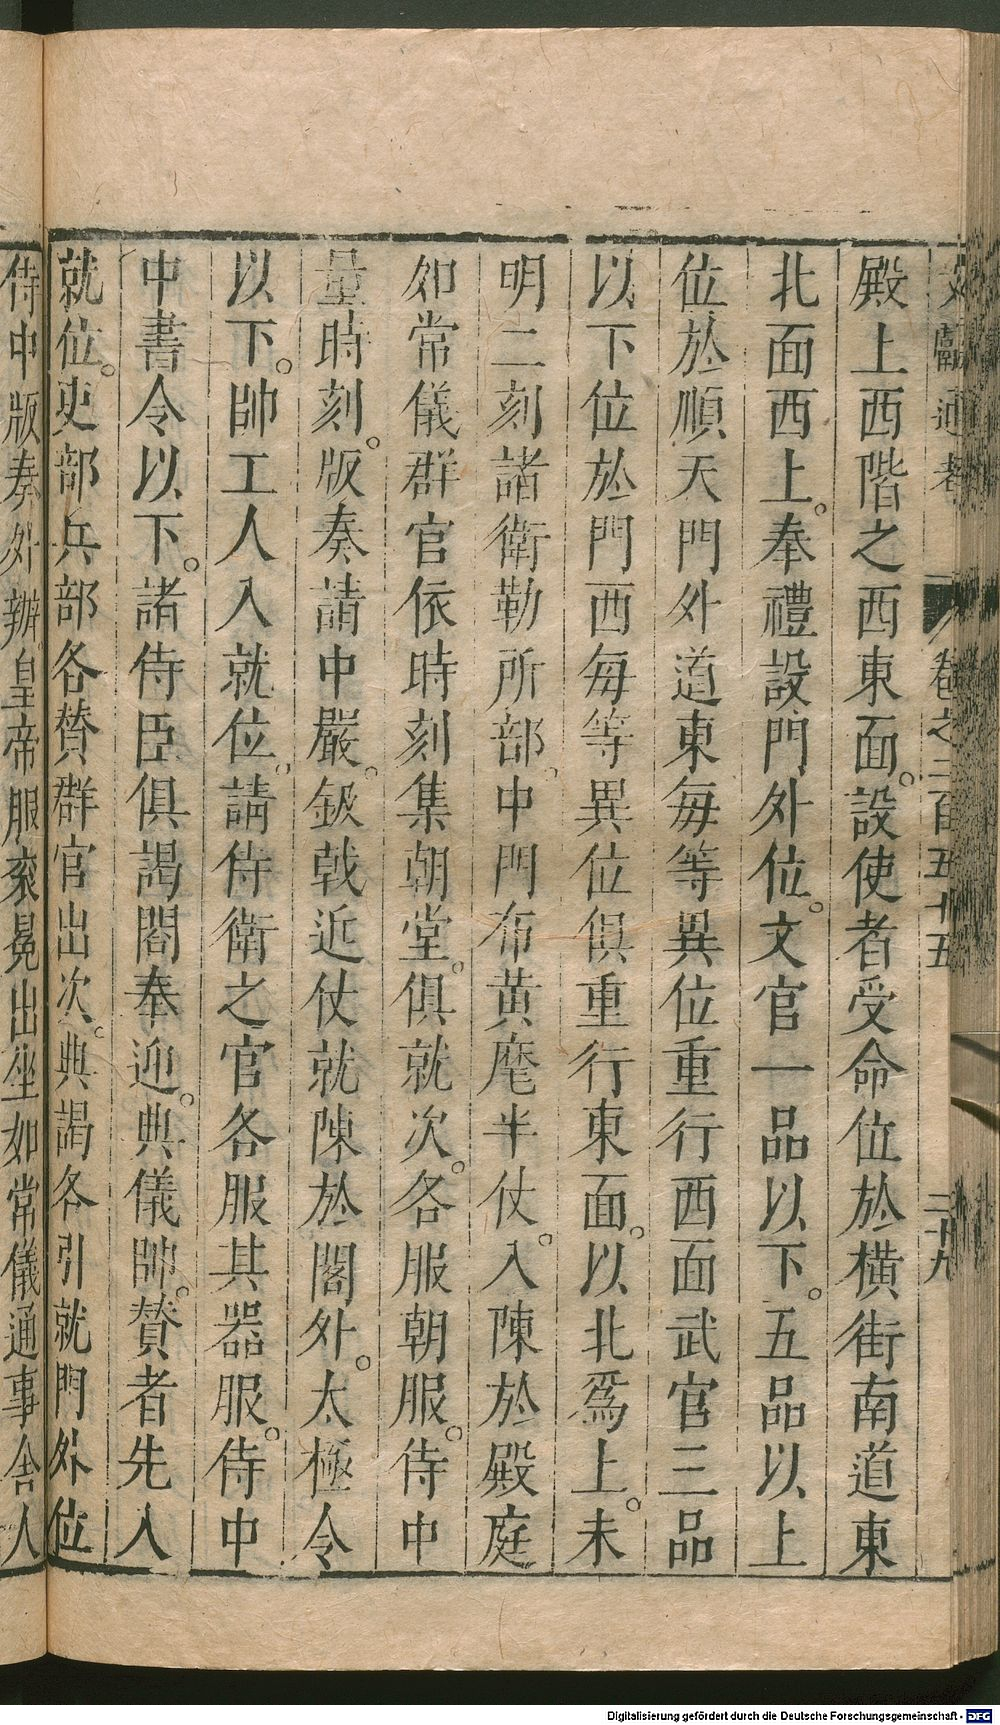 文獻通考 卷之二百五十五 二十九
殿上西階之西東面。設使者受命位於橫街南道東
北面西上。奉禮設門外位。文官一品以下。五品以上
位於順天門外道東每等異位重行西面武官三品
以下位於門西每等異位俱重行東面。以北爲上。未
明二刻諸衛勒所部。中門布黃麾半仗。入陳於殿庭
如常儀群官依時刻集朝堂。俱就次。各服朝服。侍中
量時刻。版奏請中嚴。鈒戟近仗就陳於閤外。太極令
以下。帥工人入就位。請侍衛之官各服其器服。侍中
中書令以下。諸侍臣俱謁閤奉迎。典儀帥。賛者先入
就位。吏部兵部各賛群官出次。典謁各引就門外位
侍中版奏外辦。皇帝服衮冕出坐如常儀通事舍人
Digitalisierung gefördert durch die Deutsche Forschungsgemeinschaft - DFG